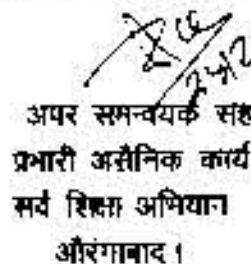 अपर समन्वयक सह
प्रभारी असैनिक कार्य
सर्व शिक्षा अभियान
औरंगाबाद।